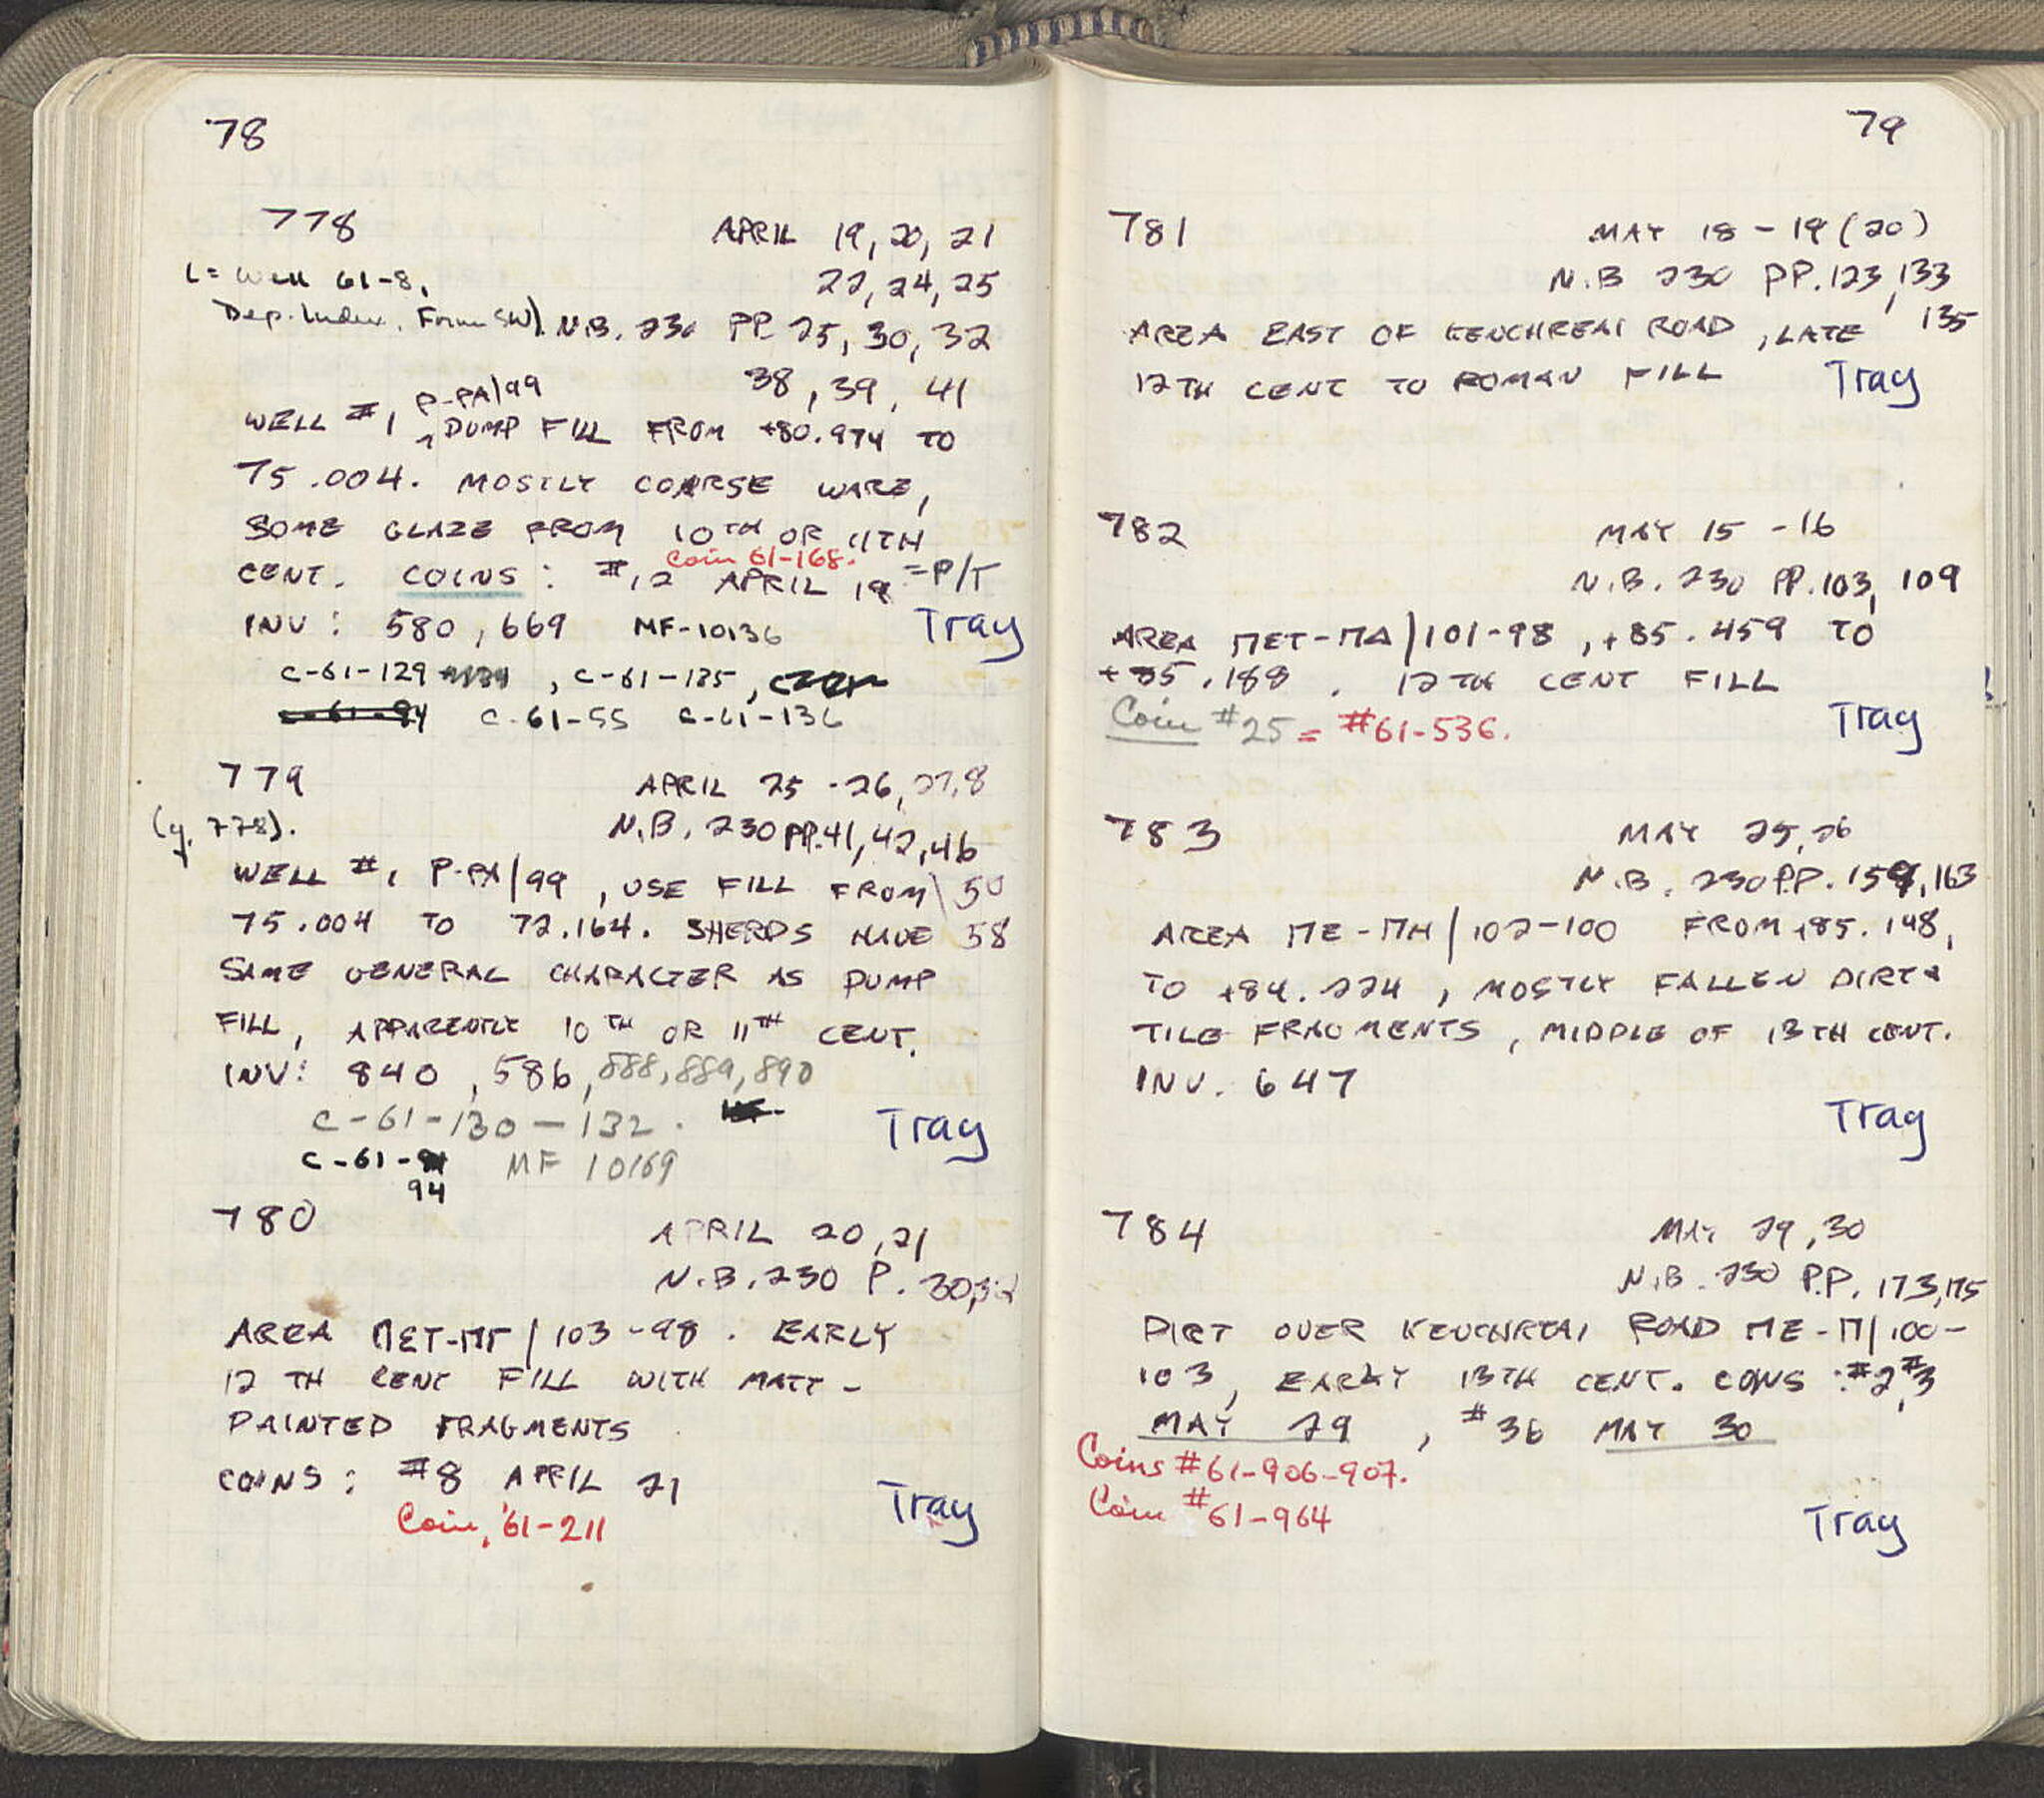 78
778 APRIL 19, 20, 21
(= Well 61-8, 22, 24, 25
Dep. Index, Forum SW) N.B. 230 PP. 25, 30, 32
38, 39, 41
WELL #1 P-PA/99 DUMP FILL FROM +80.974 TO
75.004. MOSTLY COARSE WARE,
SOME GLAZE FROM 10TH OR 11TH
CENT. COINS: #12 APRIL 19 = P/T
Coin 61-168.
INV: 580, 669 MF-10136 Tray
C-61-129, C-61-135,
C-61-94 C-61-55 C-61-136
779 APRIL 25-26, 27, 8
(cf. 778). N.B. 230 PP. 41, 42, 46
WELL #1 P-PA/99, USE FILL FROM 50
75.004 TO 72.164. SHERDS HAVE 58
SAME GENERAL CHARACTER AS DUMP
FILL, APPARENTLY 10TH OR 11TH CENT.
INV: 840, 586, 888, 889, 890
C-61-130-132. Tray
C-61-94 MF 10169
780 APRIL 20, 21
N.B. 230 P. 30, 32
AREA ΠΕΤ-ΠΓ/103-98. EARLY
12TH CENT FILL WITH MATT-
PAINTED FRAGMENTS
COINS: #8 APRIL 21
Coin, '61-211 Tray
79
781 MAY 18-19 (20)
N.B 230 PP. 123, 133
AREA EAST OF KENCHREAI ROAD, LATE 135
12TH CENT TO ROMAN FILL Tray
782 MAY 15-16
N.B. 230 PP. 103, 109
AREA ΠΕΤ-ΠΑ/101-98, +85.459 TO
+85.188. 12TH CENT FILL
Coin #25 = #61-536. Tray
783 MAY 25, 26
N.B. 230 PP. 159, 163
AREA ΠΕ-ΠΗ/102-100 FROM +85.148,
TO +84.224, MOSTLY FALLEN DIRT &
TILE FRAGMENTS, MIDDLE OF 13TH CENT.
INV. 647
Tray
784 MAY 29, 30
N.B. 230 P.P. 173, 175
DIRT OVER KENCHREAI ROAD ΠΕ-Π/100-
103, EARLY 13TH CENT. COINS: #2, #3
MAY 29, #36 MAY 30
Coins #61-906-907.
Coin #61-964
Tray